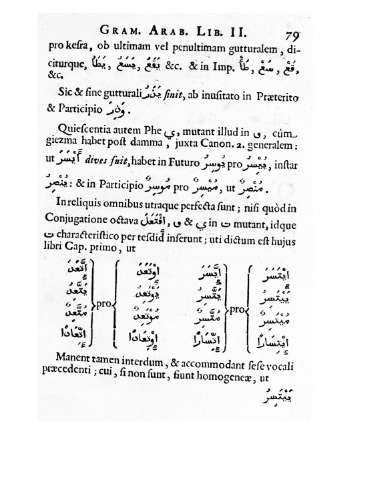 GRAM. ARAB. LIB. II. 79
pro kesra, ob ultimam vel penultimam gutturalem, di-
citurque, يَطَأُ, يَسَعُ, يَقَعُ &c. & in Imp. طَأْ, سَعْ, قَعْ,
&c.
Sic & sine gutturali يَذَرُ sinit, ab inusitato in Præterito
& Participio وَذَرَ.
Quiescentia autem Phe ي, mutant illud in و, cùm
giezma habet post damma, juxta Canon. 2. generalem:
ut أَيْسَرَ dives fuit, habet in Futuro يُوسِرُ pro يُيْسِرُ, instar
يُنْصِرُ: & in Participio مُوسِرٌ pro مُيْسِرٌ, ut مُنْصِرٌ.
In reliquis omnibus utraque perfecta sunt; nisi quòd in
Conjugatione octava اِفْتَعَلَ, و & ي in ت mutant, idque
ت characteristico per tesdid inserunt; uti dictum est hujus
libri Cap. primo, ut
اِتَّعَدَ pro اِوْتَعَدَ اِتَّسَرَ pro اِيْتَسَرَ
يَتَّعِدُ يَوْتَعِدُ يَتَّسِرُ يَيْتَسِرُ
مُتَّعِدٌ مُوْتَعِدٌ مُتَّسِرٌ مُيْتَسِرٌ
اِتِّعَادًا اِوْتِعَادًا اِتِّسَارًا اِيْتِسَارًا
Manent tamen interdum, & accommodant sese vocali
præcedenti; cui, si non sunt, fiunt homogeneæ, ut
يَيْتَسِرُ